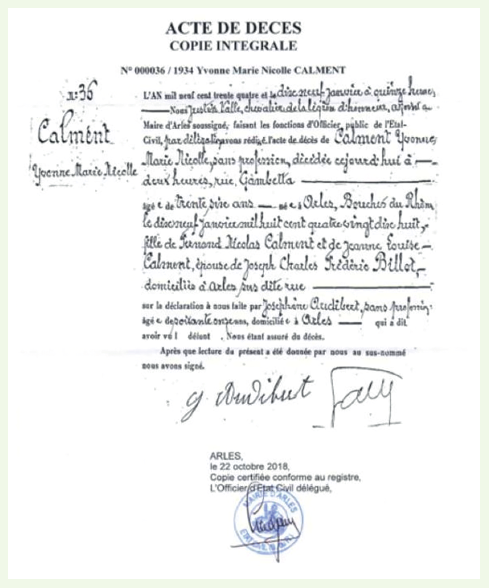 ACTE DE DECES
COPIE INTEGRALE
N° 000036 / 1934 Yvonne Marie Nicolle CALMENT
n:36
Calment
Yvonne Marie Nicolle
L'AN mil neuf cent trente quatre et le dix neuf janvier à quinze heures
Nous Valle, chevalier de la légion d'honneur, adjoint au
Maire d'Arles soussigné, faisant les fonctions d'Officier public de l'Etat-
Civil, par délégation avons rédigé l'acte de décès de Calment Yvonne
Marie Nicolle, sans profession, décédée cejourd'hui à
deux heures, rue Gambetta
âgée de trente six ans née à Arles, Bouches du Rhône
le dix neuf janvier mil huit cent quatre vingt dix huit,
fille de Fernand Nicolas Calment et de Jeanne Louise
Calment, épouse de Joseph Charles Frédéric Billot,
domiciliés à Arles sus dite rue
sur la déclaration à nous faite par Joséphine Audibert, sans profession
âgée de soixante onze ans, domiciliée à Arles qui a dit
avoir vu l défunt . Nous étant assuré du décès.
Après que lecture du présent a été donnée par nous au sus-nommé
nous avons signé.
J. Audibert
ARLES,
le 22 octobre 2018,
Copie certifiée conforme au registre,
L'Officier d'Etat Civil délégué,
MAIRIE D'ARLES